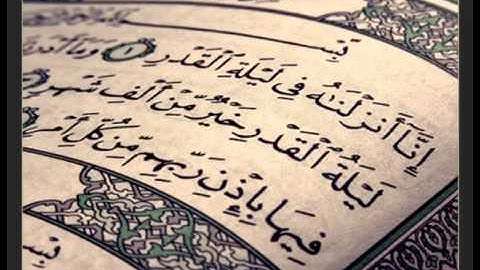 بِسْـ
إِنَّا أَنزَلْنَٰهُ فِى لَيْلَةِ ٱلْقَدْرِ ١ وَمَآ أَدْرَ
لَيْلَةُ ٱلْقَدْرِ خَيْرٌ مِّنْ أَلْفِ شَهْرٍ
فِيهَا بِإِذْنِ رَبِّهِم مِّن كُلِّ أَمْرٍ
بِسْـ